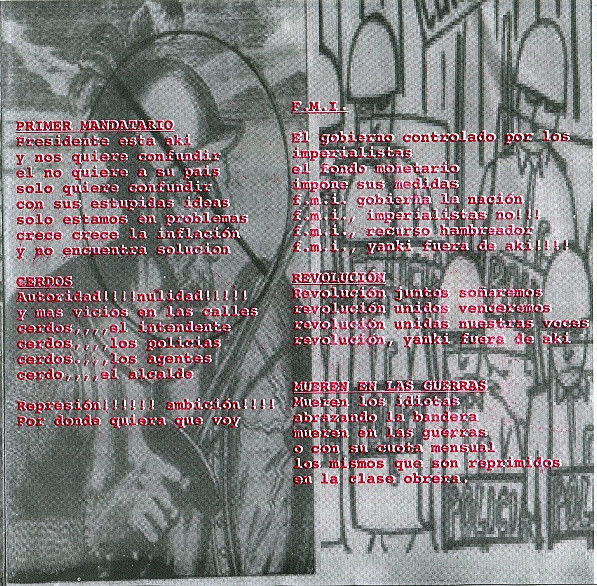 PRIMER MANDATARIO
Presidente esta aki
y nos quiere confundir
el no quiere a su pais
solo quiere confundir
con sus estupidas ideas
solo estamos en problemas
crece crece la inflación
y no encuentra solucion
CERDOS
Autoridad!!!!nulidad!!!!!
y mas vicios en las calles
cerdos,,,,el intendente
cerdos,,,,los policias
cerdos.,,,los agentes
cerdo,,,,el alcalde
Represión!!!!!! ambición!!!!
Por donde quiera que voy
F.M.I.
El gobierno controlado por los
imperialistas
el fondo monetario
impone sus medidas
f.m.i. gobierna la nación
f.m.i., imperialistas no!!!
f.m.i., recurso hambreador
f.m.i., yanki fuera de aki!!!!
REVOLUCIÓN
Revolución juntos soñaremos
revolución unidos venceremos
revolución unidas nuestras voces
revolución, yanki fuera de aki
MUEREN EN LAS GUERRAS
Mueren los idiotas
abrazando la bandera
mueren en las guerras
o con su cuota mensual
los mismos que son reprimidos
en la clase obrera.
POLICIA